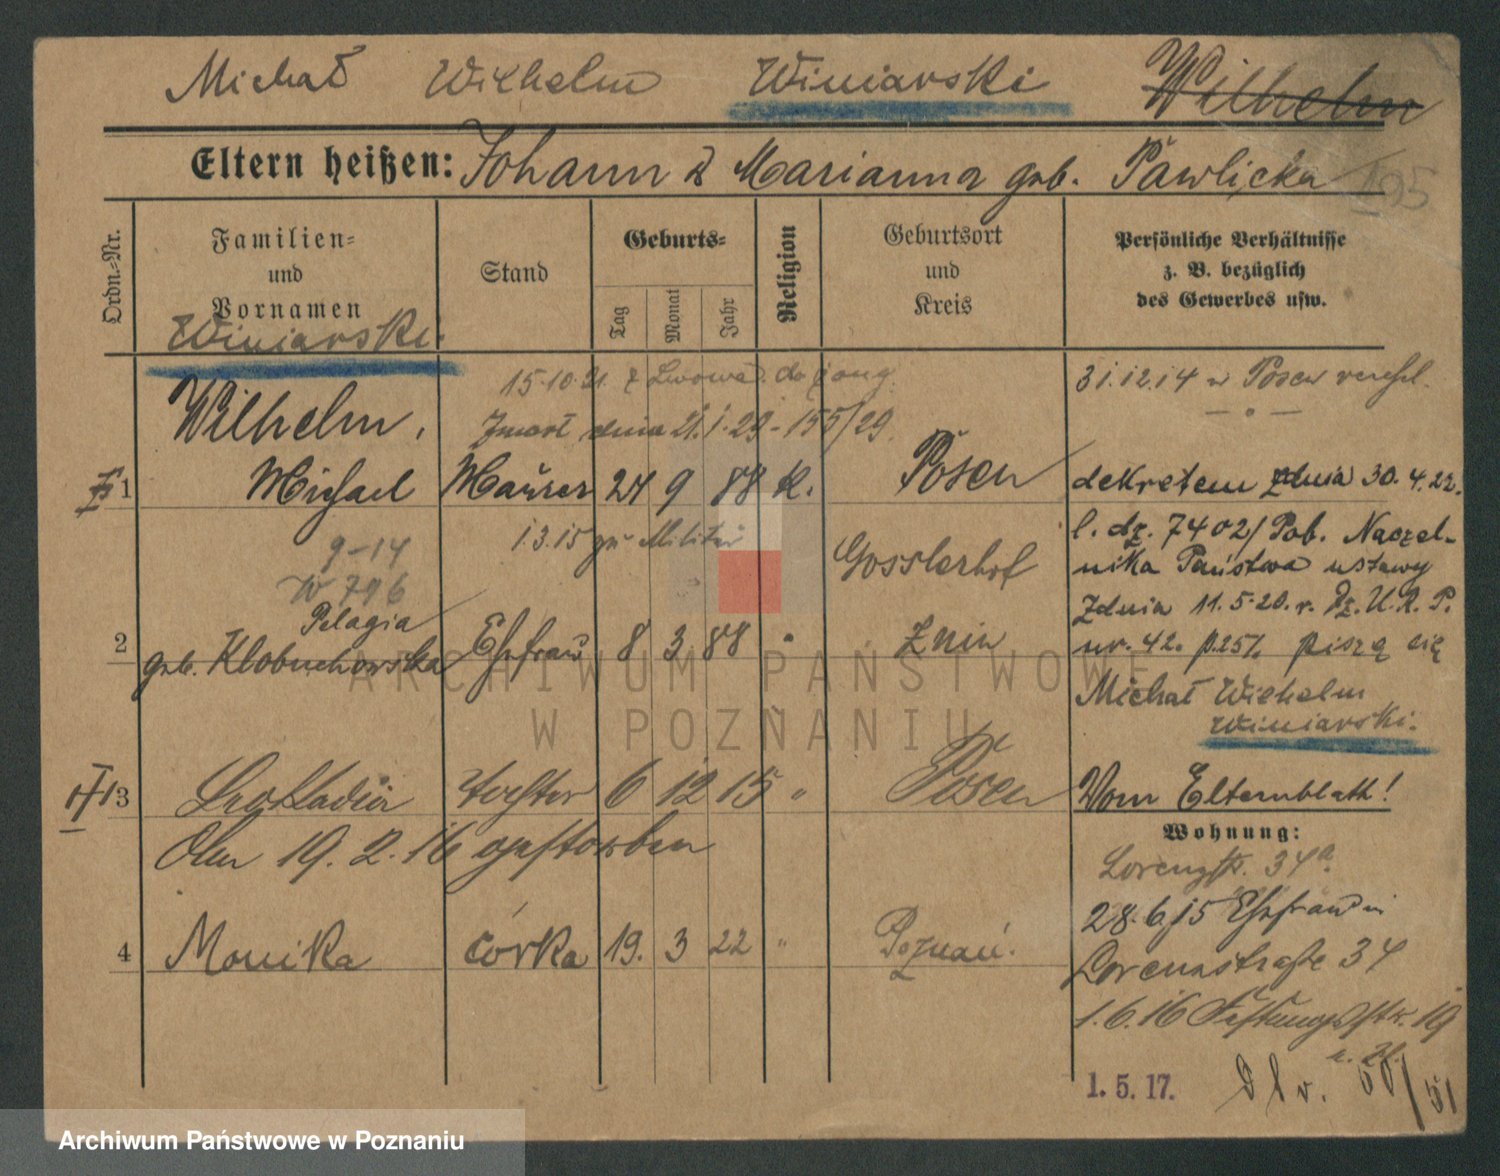 Michał Wilhelm Winiarski Wilhelm
Eltern heißen: Johann & Marianna geb. Pawlicka
195
Ordn.-Nr.
Familien-
und
Vornamen
Winiarski.
Stand
Geburts-
Tag
Monat
Jahr
Religion
Geburtsort
und
Kreis
Persönliche Verhältnisse
z. B. bezüglich
des Gewerbes usw.
15.10.21. z Lwowa do żony
31.12.14 in Posen verehel.
Wilhelm,
Zmarł dnia 21.1.29 - 155/29.
1 Michael Maurer 24 9 88 K. Posen
dekretem z dnia 30.4.22.
9-14
1.3.15 zu Militär
Gosslerhof
l. dz. 7402/Pob. Naczel-
nika Państwa ustawy
W 796
z dnia 11.5.20. r. Dz. U. R. P.
2 Pelagia
geb. Klobuchowska Ehefrau 8 3 88 " Znin
nr. 42. p. 257. piszą się
Michał Wilhelm
Winiarski.
3 Leokadia Tochter 6 12 15 " Posen
Vom Elternblatt!
Am 19.2.16 gestorben
Wohnung:
Lorenzstr. 34a.
28.6.15 Ehefrau in
4 Monika córka 19. 3 22 " Poznań.
Lorenzstraße 34
1.6.16 Festungsstr. 19
1. 5. 17.
50/51
ARCHIWUM PAŃSTWOWE
W POZNANIU
Archiwum Państwowe w Poznaniu